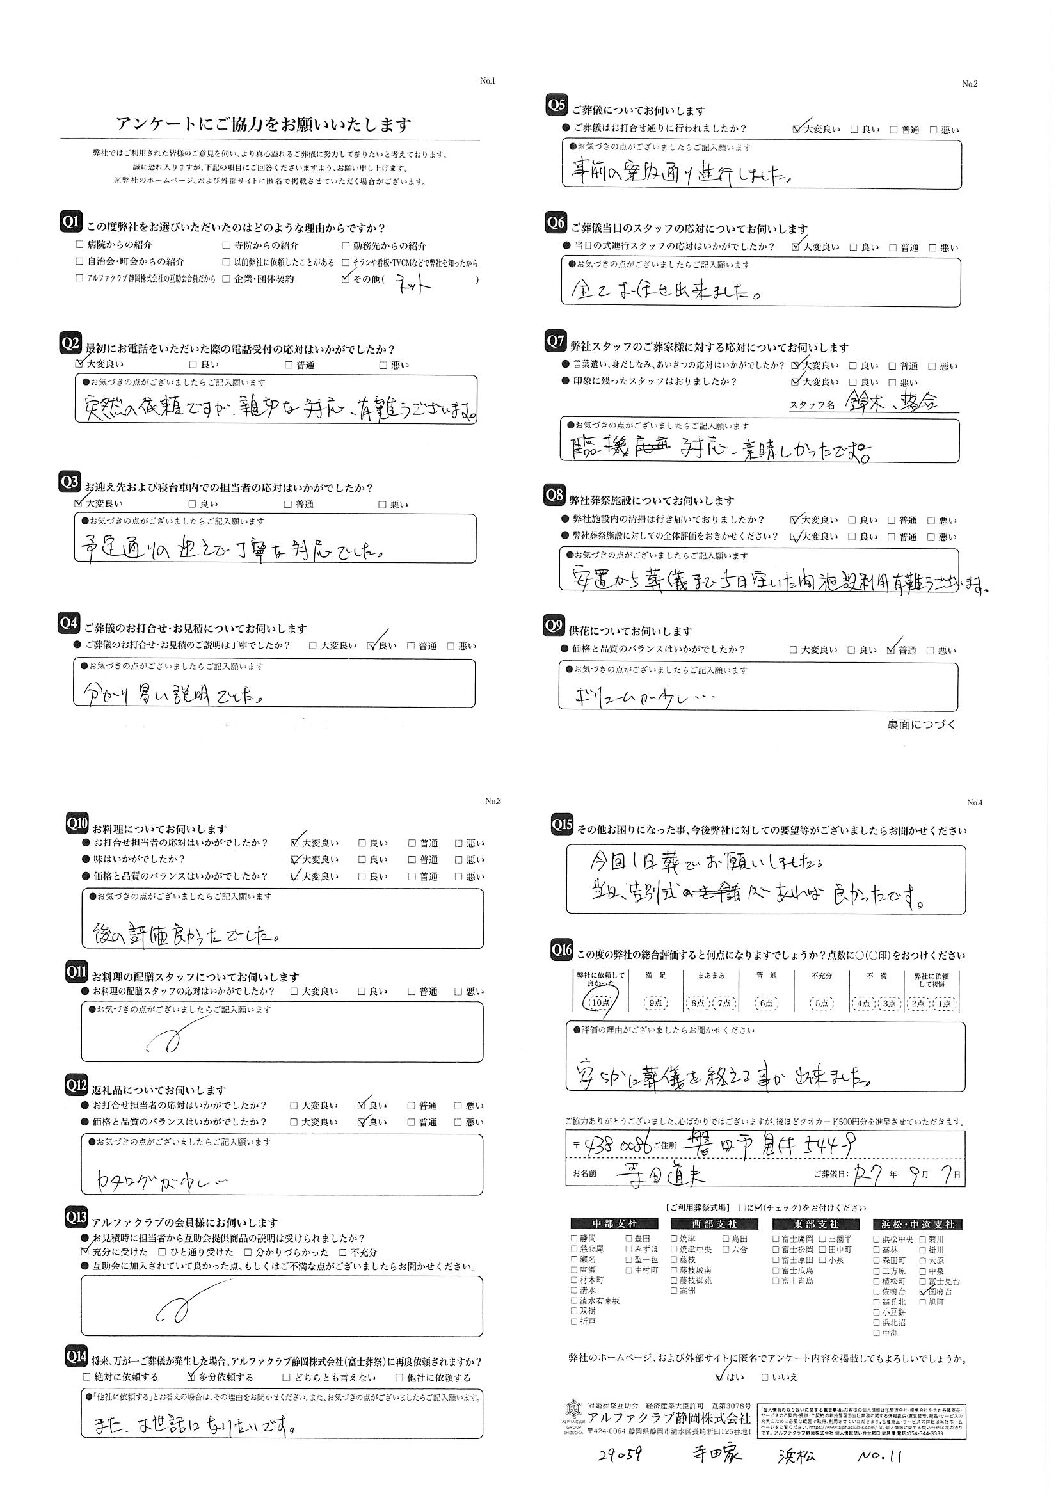 No.1
アンケートにご協力をお願いいたします
弊社ではご利用された皆様のご意見を伺い、より真心溢れるご葬儀に努力して参りたいと考えております。
誠に恐れ入りますが、下記の項目にご回答くださいますよう、お願い申し上げます。
※弊社のホームページ、および外部サイトに匿名で掲載させていただく場合がございます。
Q1 この度弊社をお選びいただいたのはどのような理由からですか?
□ 病院からの紹介 □ 寺院からの紹介 □ 勤務先からの紹介
□ 自治会・町会からの紹介 □ 以前弊社に依頼したことがある □ チラシや看板・TVCMなどで弊社を知ったから
□ アルファクラブ静岡株式会社の互助会会員だから □ 企業・団体契約 ☑ その他( ネット )
Q2 最初にお電話をいただいた際の電話受付の応対はいかがでしたか?
☑ 大変良い □ 良い □ 普通 □ 悪い
●お気づきの点がございましたらご記入願います
突然の依頼ですが、親切な対応、有難うございます。
Q3 お迎え先および寝台車内での担当者の応対はいかがでしたか?
☑ 大変良い □ 良い □ 普通 □ 悪い
●お気づきの点がございましたらご記入願います
予定通りの迎えで丁寧な対応でした。
Q4 ご葬儀のお打合せ・お見積についてお伺いします
● ご葬儀のお打合せ・お見積のご説明は丁寧でしたか? □ 大変良い ☑ 良い □ 普通 □ 悪い
●お気づきの点がございましたらご記入願います
分かり易い説明でした。
No.2
Q5 ご葬儀についてお伺いします
● ご葬儀はお打合せ通りに行われましたか? ☑ 大変良い □ 良い □ 普通 □ 悪い
●お気づきの点がございましたらご記入願います
事前の段取通り進行しました。
Q6 ご葬儀当日のスタッフの応対についてお伺いします
● 当日の式進行スタッフの応対はいかがでしたか? ☑ 大変良い □ 良い □ 普通 □ 悪い
●お気づきの点がございましたらご記入願います
全てお任せ出来ました。
Q7 弊社スタッフのご葬家様に対する応対についてお伺いします
● 言葉遣い、身だしなみ、あいさつの応対はいかがでしたか? ☑ 大変良い □ 良い □ 普通 □ 悪い
● 印象に残ったスタッフはおりましたか? ☑ 大変良い □ 良い □ 悪い
スタッフ名 鈴木、落合
●お気づきの点がございましたらご記入願います
臨機 対応、素晴しかったです。
Q8 弊社葬祭施設についてお伺いします
● 弊社施設内の清掃は行き届いておりましたか? ☑ 大変良い □ 良い □ 普通 □ 悪い
● 弊社葬祭施設に対しての全体評価をおきかせください? ☑ 大変良い □ 良い □ 普通 □ 悪い
●お気づきの点がございましたらご記入願います
安置から葬儀まで5日空いた間施設利用有難うございます。
Q9 供花についてお伺いします
● 価格と品質のバランスはいかがでしたか? □ 大変良い □ 良い ☑ 普通 □ 悪い
●お気づきの点がございましたらご記入願います
ボリュームが少し…
裏面につづく
No.3
Q10 お料理についてお伺いします
● お打合せ担当者の応対はいかがでしたか? ☑ 大変良い □ 良い □ 普通 □ 悪い
● 味はいかがでしたか? ☑ 大変良い □ 良い □ 普通 □ 悪い
● 価格と品質のバランスはいかがでしたか? ☑ 大変良い □ 良い □ 普通 □ 悪い
●お気づきの点がございましたらご記入願います
後の評価良かったでした。
Q11 お料理の配膳スタッフについてお伺いします
● お料理の配膳スタッフの応対はいかがでしたか? □ 大変良い □ 良い □ 普通 □ 悪い
●お気づきの点がございましたらご記入願います
Q12 返礼品についてお伺いします
● お打合せ担当者の応対はいかがでしたか? □ 大変良い ☑ 良い □ 普通 □ 悪い
● 価格と品質のバランスはいかがでしたか? □ 大変良い ☑ 良い □ 普通 □ 悪い
●お気づきの点がございましたらご記入願います
カタログが少し…
Q13 アルファクラブの会員様にお伺いします
● お見積時に担当者から互助会提供商品の説明は受けられましたか?
☑ 充分に受けた □ ひと通り受けた □ 分かりづらかった □ 不充分
● 互助会に加入されていて良かった点、もしくはご不満な点がございましたらお聞かせください。
Q14 将来、万が一ご葬儀が発生した場合、アルファクラブ静岡株式会社(富士葬祭)に再度依頼されますか?
□ 絶対に依頼する ☑ 多分依頼する □ どちらとも言えない □ 他社に依頼する
●「他社に依頼する」とお答えの場合は、その理由をお聞かせください。また、お気づきの点がございましたらご記入願います。
また、お世話になりたいです。
No.4
Q15 その他お困りになった事、今後弊社に対しての要望等がございましたらお聞かせください
今回1日葬でお願いしましたら
当日、告別式の 良かったです。
Q16 この度の弊社の総合評価すると何点になりますでしょうか?点数に○(○印)をおつけください
弊社に依頼して良かった 満足 まあまあ 普通 不充分 不満 弊社に依頼して後悔
10点 9点 8点 7点 6点 5点 4点 3点 2点 1点
●評価の理由がございましたらお聞かせください
安らかに葬儀を終える事が出来ました。
ご協力ありがとうございました。心ばかりではございますが、後ほどクオカード500円分を進呈させていただきます。
〒438 0086 ご住所 磐田市見付5449
お名前 寺田直夫 ご葬儀日: R7年 9月 7日
【ご利用葬祭式場】 □に☑(チェック)をお付けください
中部支社 西部支社 東部支社 浜松・中遠支社
弊社のホームページ、および外部サイトに匿名でアンケート内容を掲載してもよろしいでしょうか。
☑ はい □ いいえ
アルファクラブ静岡株式会社
29059 寺田家 浜松 NO.11